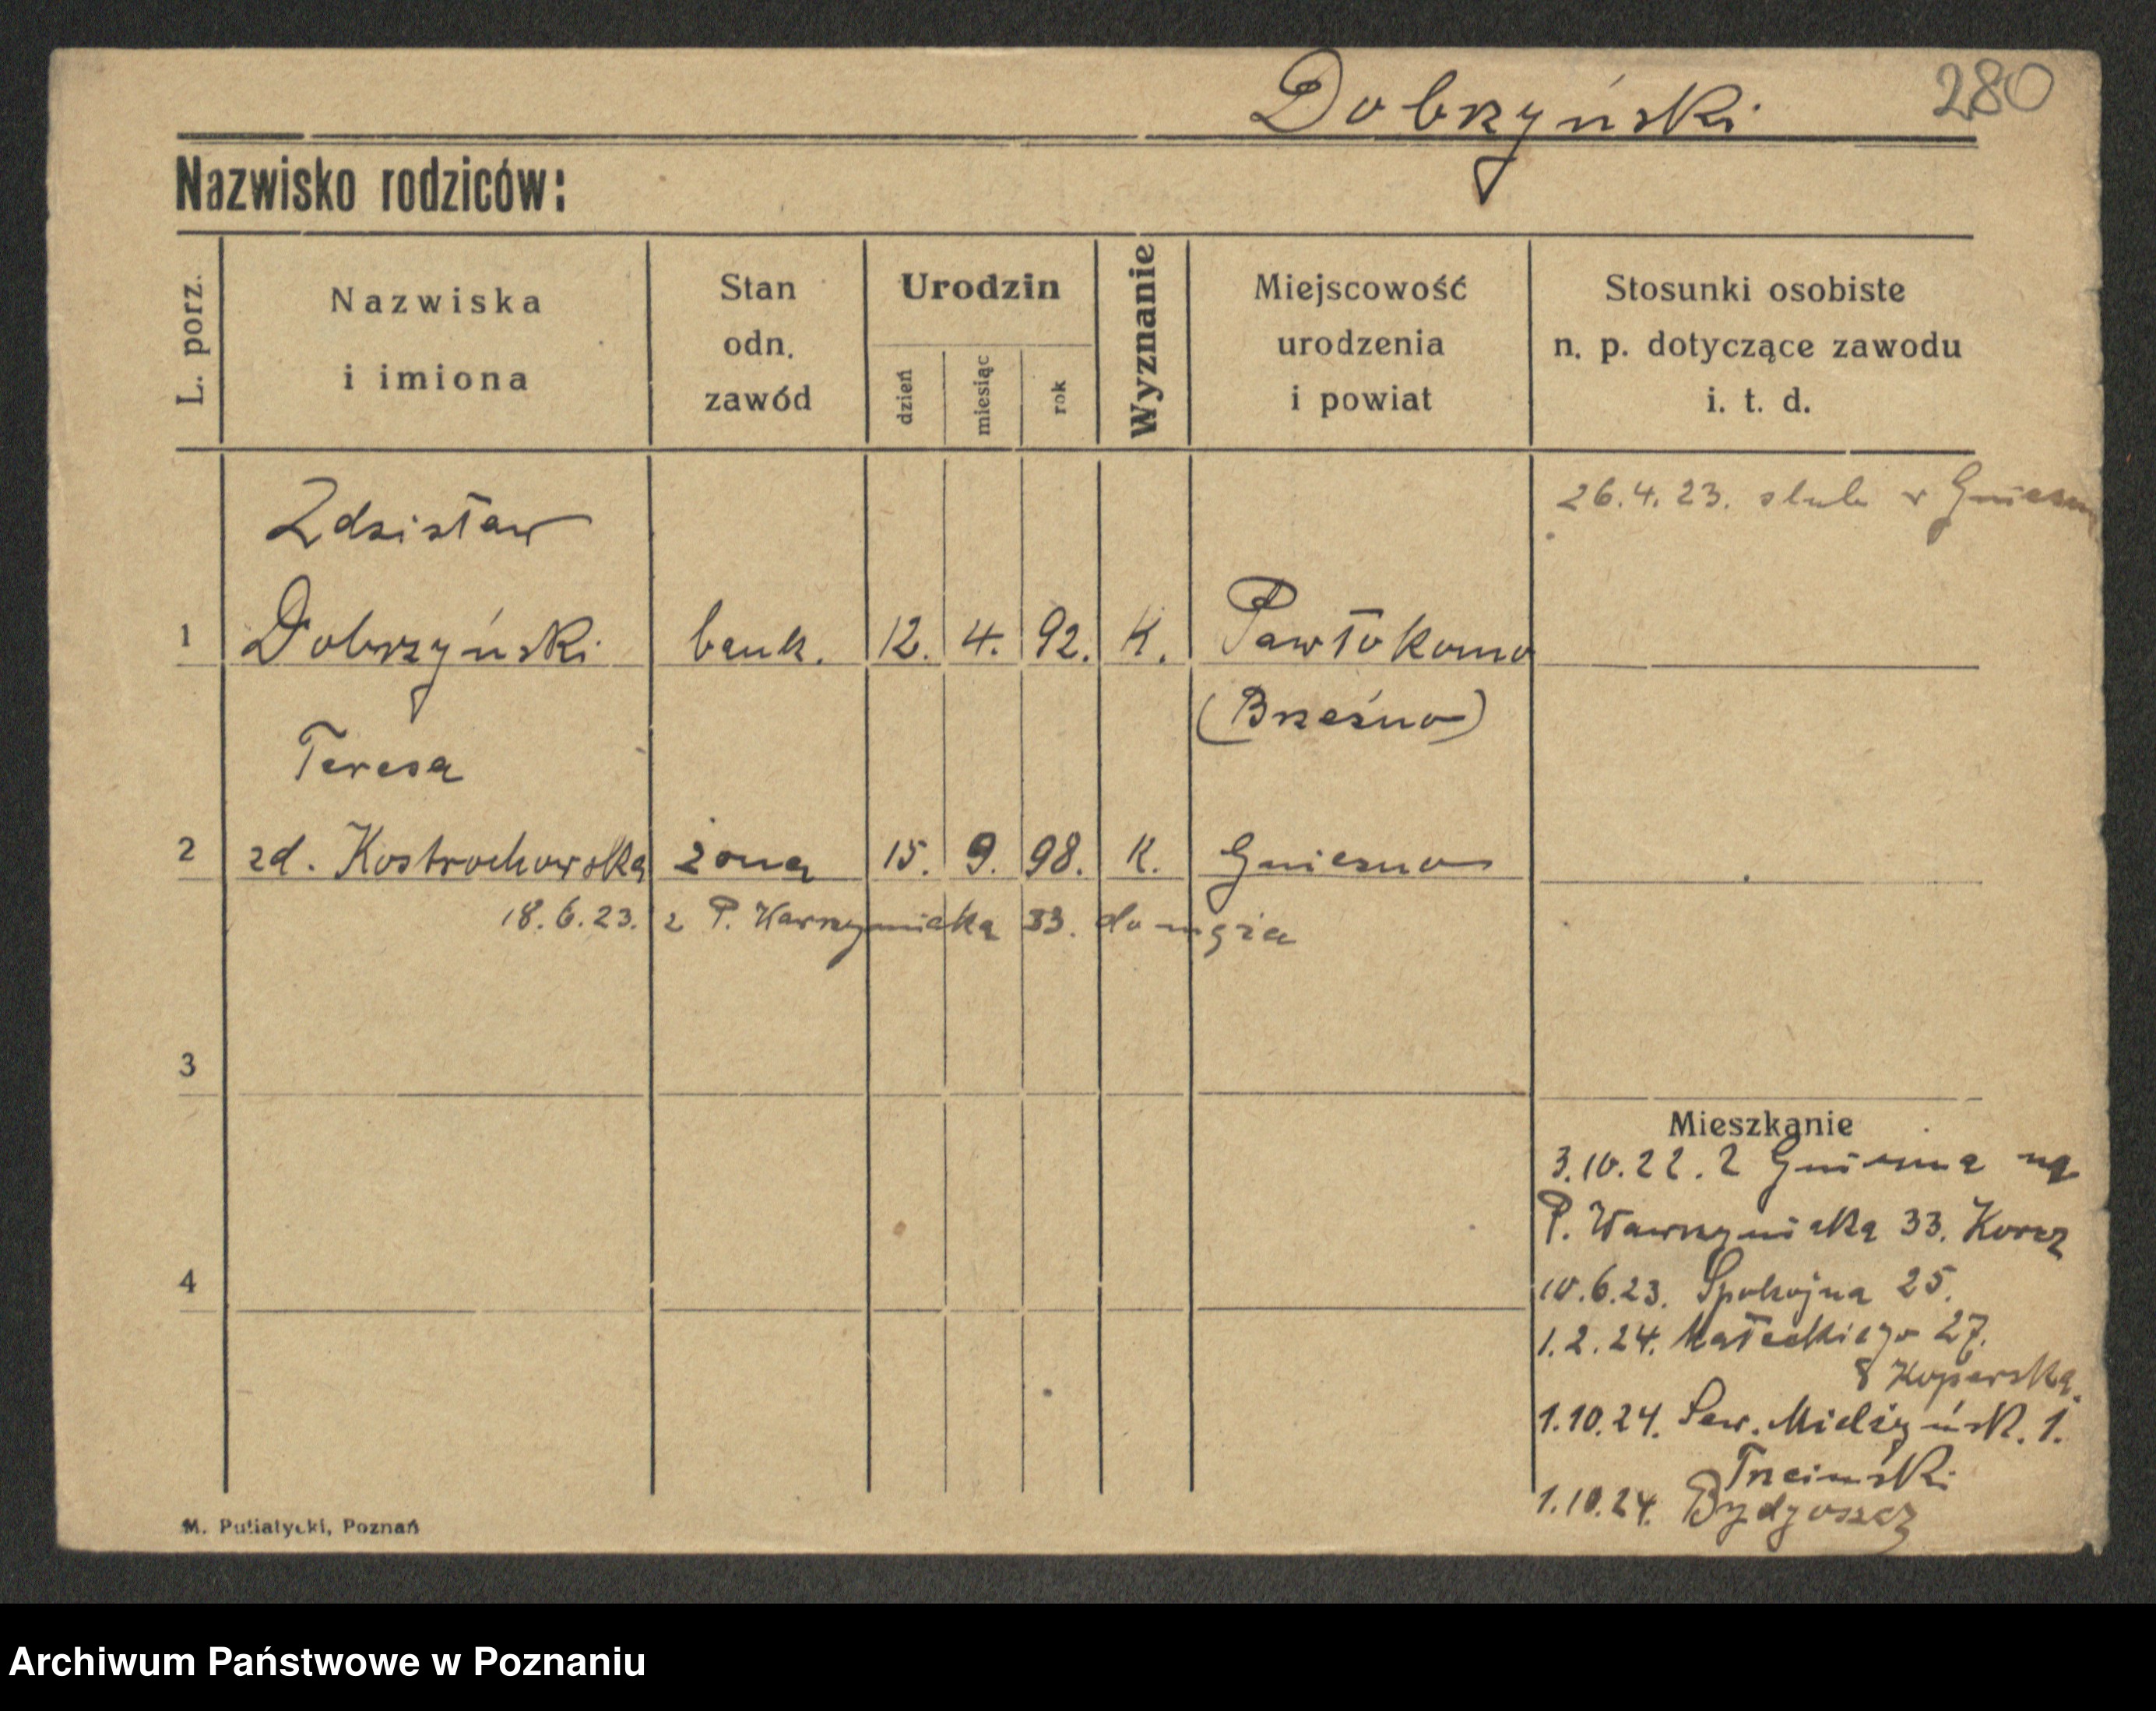 Dobrzyński
280
Nazwisko rodziców:
L. porz.
Nazwiska
i imiona
Stan
odn.
zawód
Urodzin
dzień
miesiąc
rok
Wyznanie
Miejscowość
urodzenia
i powiat
Stosunki osobiste
n. p. dotyczące zawodu
i. t. d.
26.4.23. slub w Gniezn
Zdzisław
1 Dobrzyński bank. 12. 4. 92. K. Pawłokoma
(Brzeźno)
Teresa
2 zd. Kostrochowska żona 15. 9. 98. K. Gniezno
18.6.23. z P. Wawrzyniaka 33. do męża
3
Mieszkanie
3.10.22. z Gniezna na
P. Wawrzyniaka 33.
4
10.6.23. Spokojna 25.
1.2.24. Małeckiego 27.
Koperska.
1.10.24. Sew. Mielżyńsk. 1.
1.10.24. Bydgoszcz
M. Putiatycki, Poznań
Archiwum Państwowe w Poznaniu